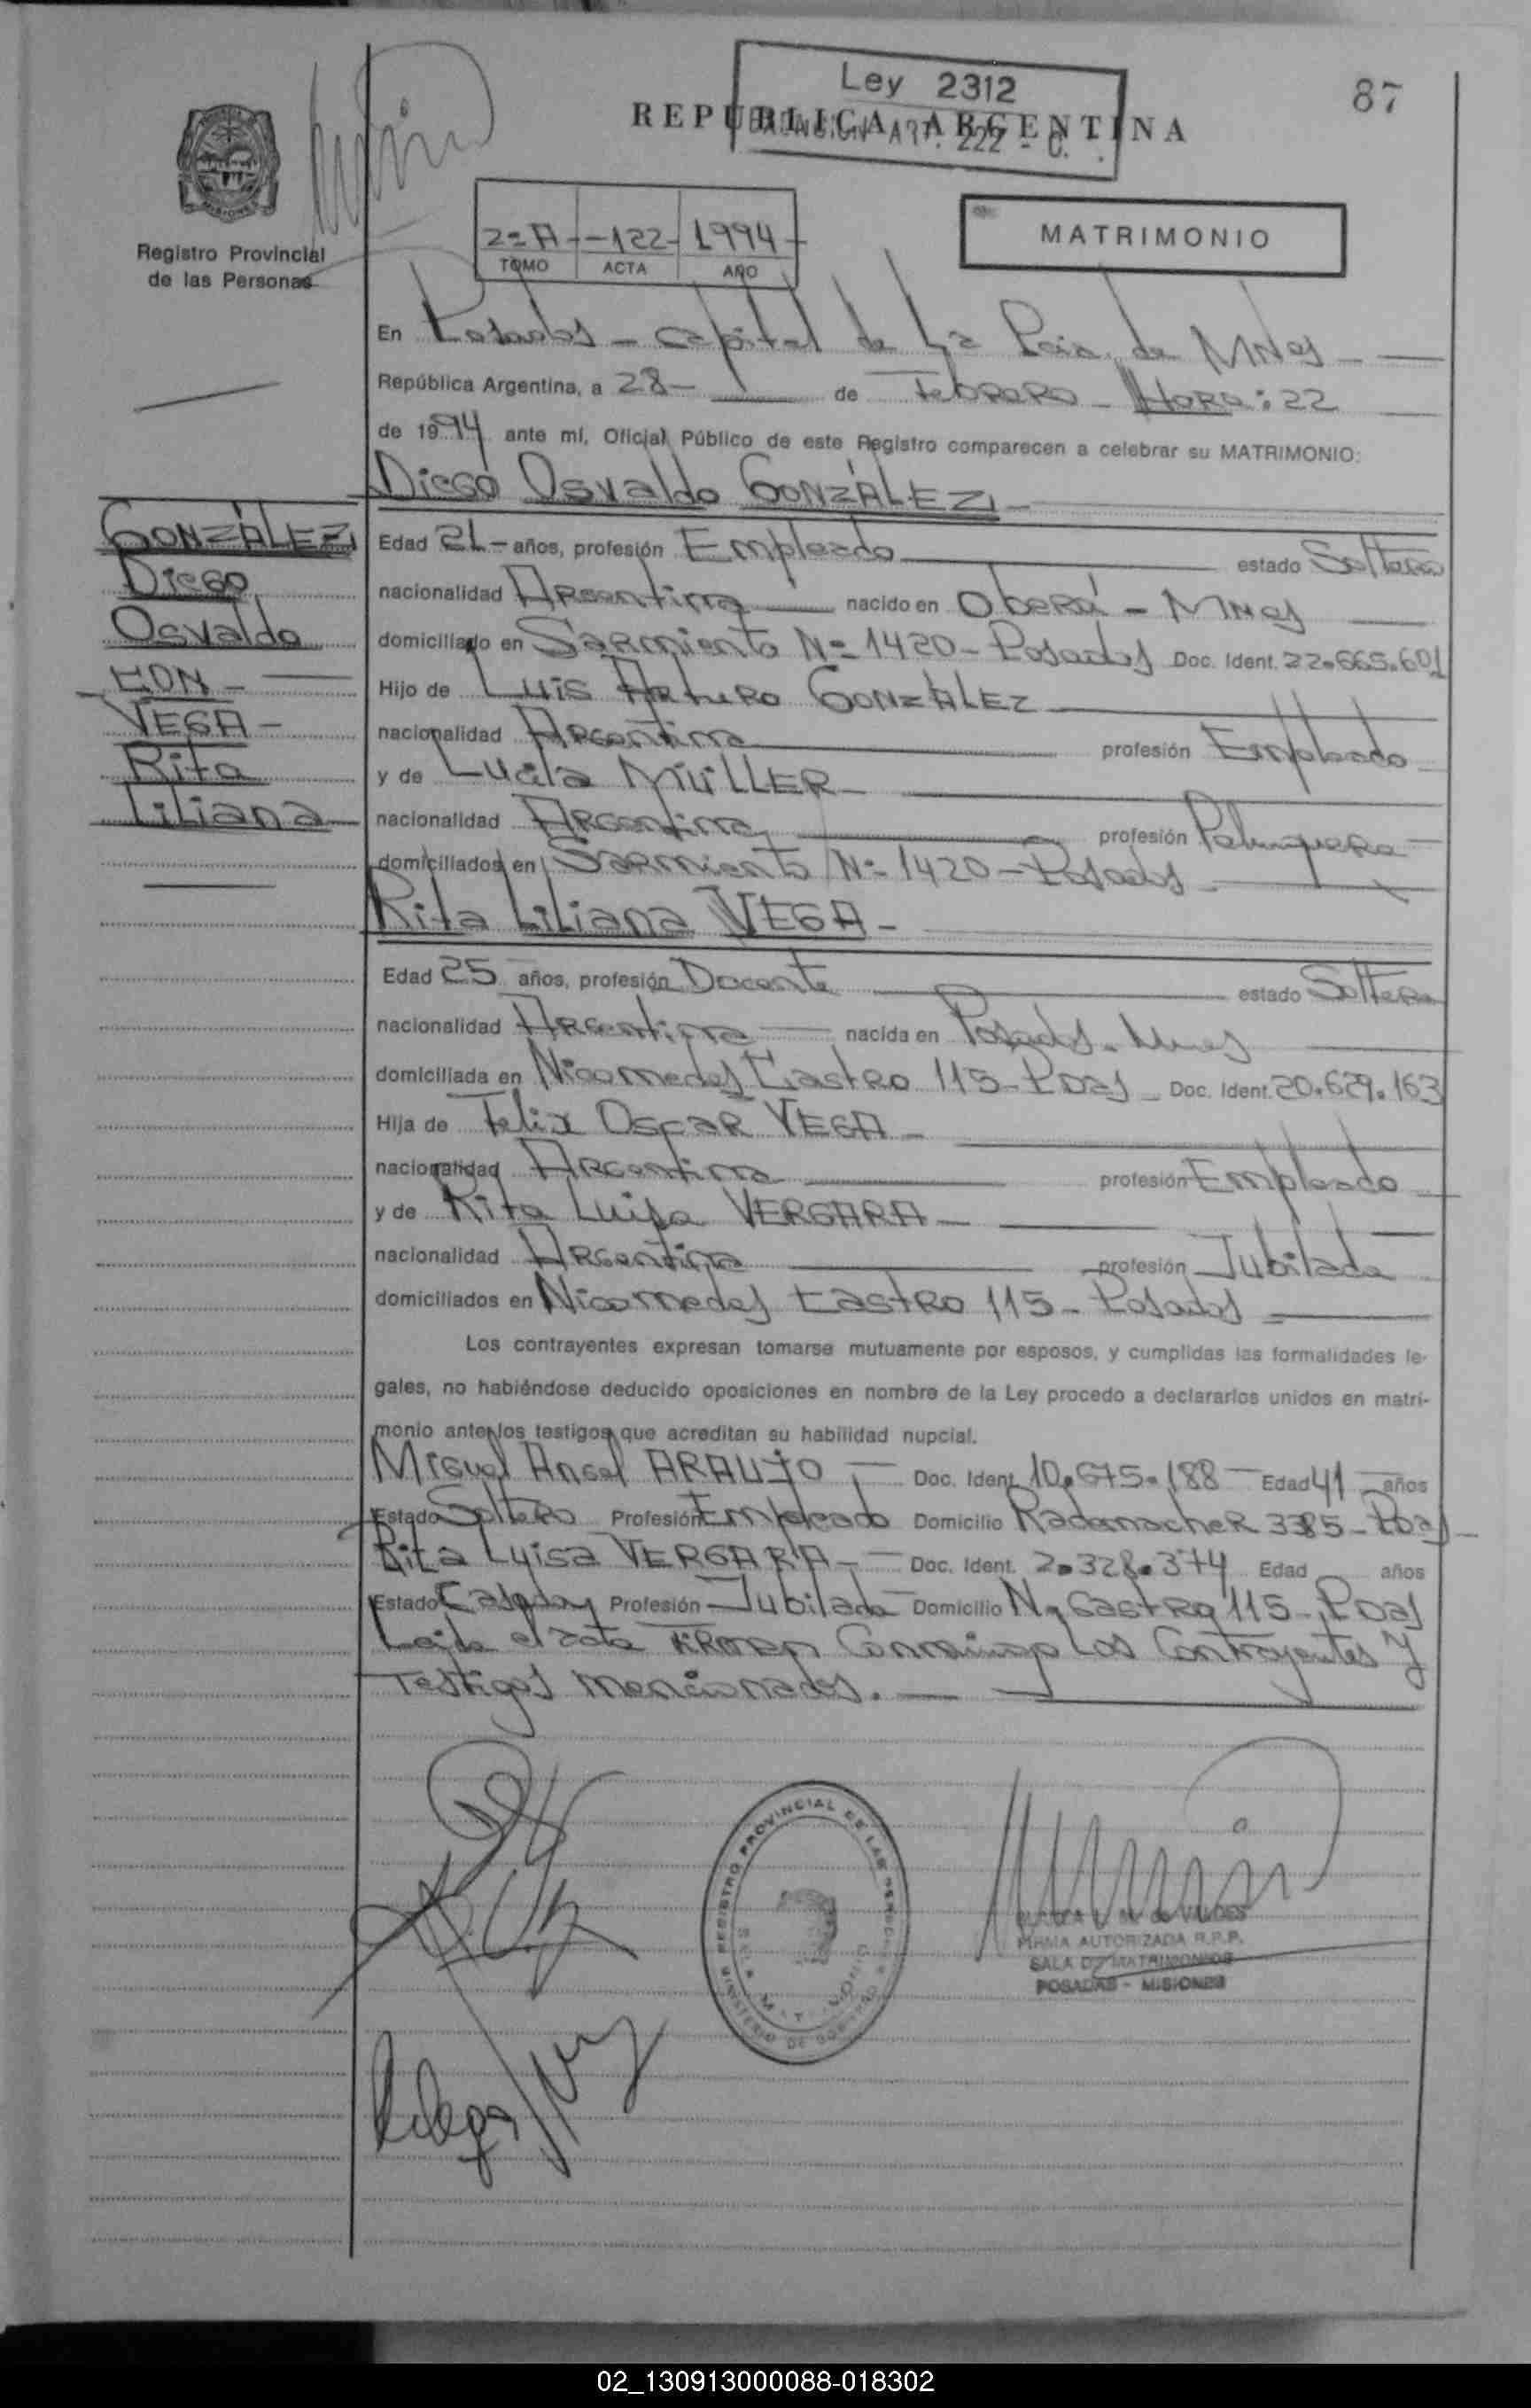 87
Ley 2312
REPUBLICA ARGENTINA
ART. 222 - C.
2=A - 122 - 1994
TOMO ACTA AÑO
MATRIMONIO
MISIONES
Registro Provincial
de las Personas
En Posadas - Capital de La Pcia. de MNes -
República Argentina, a 28 - de Febrero - Hora: 22
de 1994 ante mí, Oficial Público de este Registro comparecen a celebrar su MATRIMONIO:
Diego Osvaldo GONZÁLEZ -
GONZÁLEZ
Diego
Osvaldo
CON -
VEGA -
Rita
Liliana
Edad 21 - años, profesión Empleado estado Soltero
nacionalidad Argentina nacido en Oberá - MNes
domiciliado en Sarmiento N= 1420 - Posadas Doc. Ident. 22.665.601
Hijo de Luis Arturo GONZÁLEZ
nacionalidad Argentina profesión Empleado
y de Lucila MÜLLER -
nacionalidad Argentina profesión Peluquera
domiciliados en Sarmiento N= 1420 - Posadas
Rita Liliana VEGA -
Edad 25 años, profesión Docente estado Soltera
nacionalidad Argentina nacida en Posadas - Mnes
domiciliada en Nicomedes Castro 115 - Pdas - Doc. Ident. 20.629.163
Hija de Felix Oscar VEGA -
nacionalidad Argentina profesión Empleado
y de Rita Luisa VERGARA -
nacionalidad Argentina profesión Jubilada
domiciliados en Nicomedes Castro 115 - Posadas
Los contrayentes expresan tomarse mutuamente por esposos, y cumplidas las formalidades le-
gales, no habiéndose deducido oposiciones en nombre de la Ley procedo a declararlos unidos en matri-
monio ante los testigos que acreditan su habilidad nupcial.
Miguel Angel ARAUJO - Doc. Ident. 10.675.188 - Edad 41 años
Estado Soltero Profesión Empleado Domicilio Rademacher 3385 - Pdas -
Rita Luisa VERGARA - Doc. Ident. 2.328.374 Edad años
Estado Casada Profesión Jubilada Domicilio N. Castro 115 - Pdas
Leída el acta Firman Conmigo Los Contrayentes y
Testigos mencionados. -
REGISTRO PROVINCIAL DE LAS PERSONAS
MINISTERIO DE GOBIERNO
SALA MATRIMONIO
de VALDES
FIRMA AUTORIZADA R.P.P.
SALA DE MATRIMONIOS
POSADAS - MISIONES
02_130913000088-018302